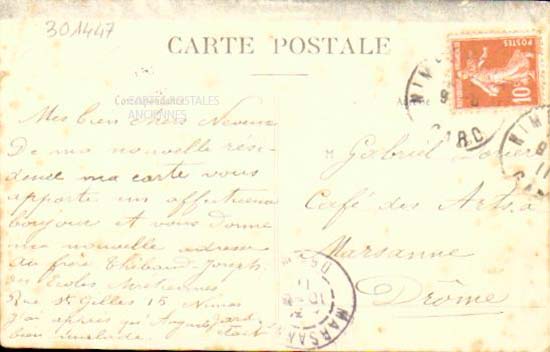 301447
CARTE POSTALE
Correspondance
CARTES POSTALES
ANCIENNES
Adresse
POSTES
10c
NIM
GARD
Mes bien chers Neveux
De ma nouvelle rési-
dence ma carte vous
apporte un affectueux
bonjour et vous Donne
ma nouvelle adresse
au frère Thibaud-Joseph
des Ecoles
Rue St Gilles 15 Nimes
J'ai appris qu'Auguste
bien était
M Gabriel
Café des Arts à
Marsanne
Drôme
MARSAN